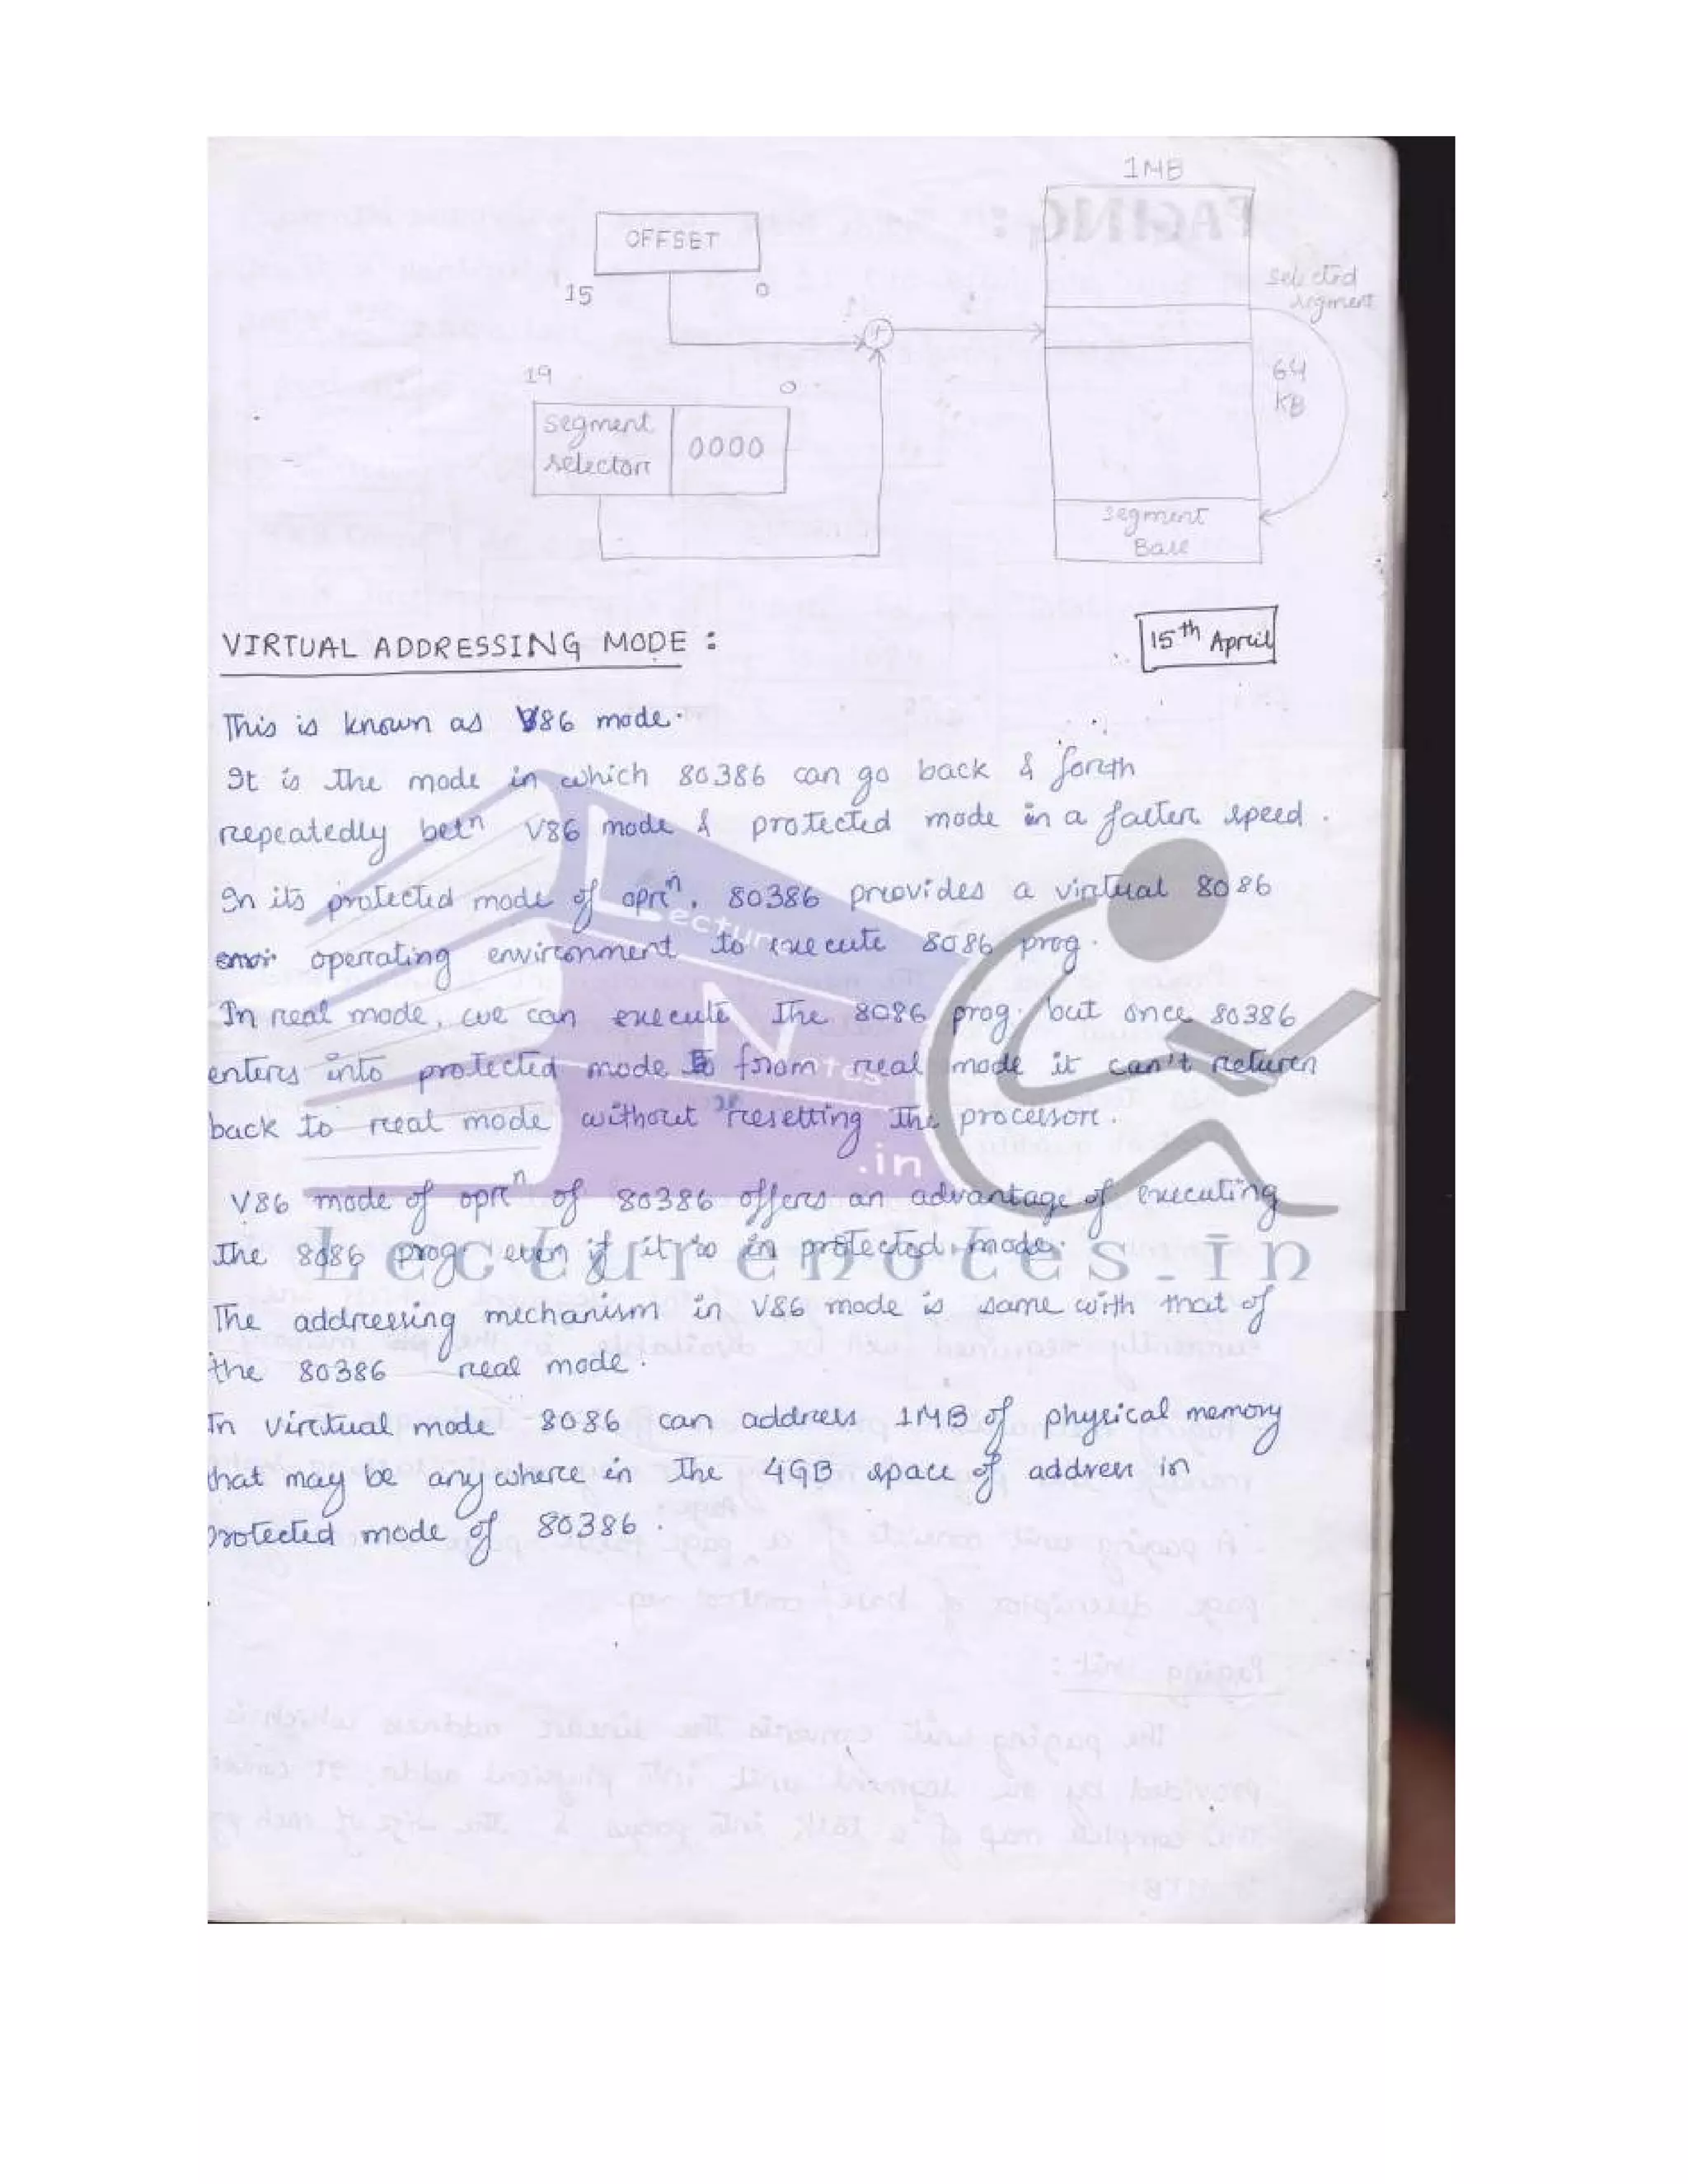 1MB
OFFSET
15 0
selected
segment
+
19 0
64
KB
segment
selector
0000
segment
Base
VIRTUAL ADDRESSING MODE :
15th April
This is known as V86 mode.
It is the mode in which 80386 can go back & forth
repeatedly betn V86 mode & protected mode in a faster speed .
In its protected mode of oprn, 80386 provides a virtual 8086
operating environment to execute 8086 prog.
In real mode, we can execute the 8086 prog. but once 80386
enters into protected mode from real mode it can't return
back to real mode without resetting the processor.
V86 mode of oprn of 80386 offers an advantage of executing
the 8086 prog. even if it is in protected mode.
The addressing mechanism in V86 mode is same with that of
the 80386 real mode.
In virtual mode 8086 can address 1MB of physical memory
that may be anywhere in the 4GB space of address in
protected mode of 80386 .
Lecture
Notes
.in
Lecturenotes.in